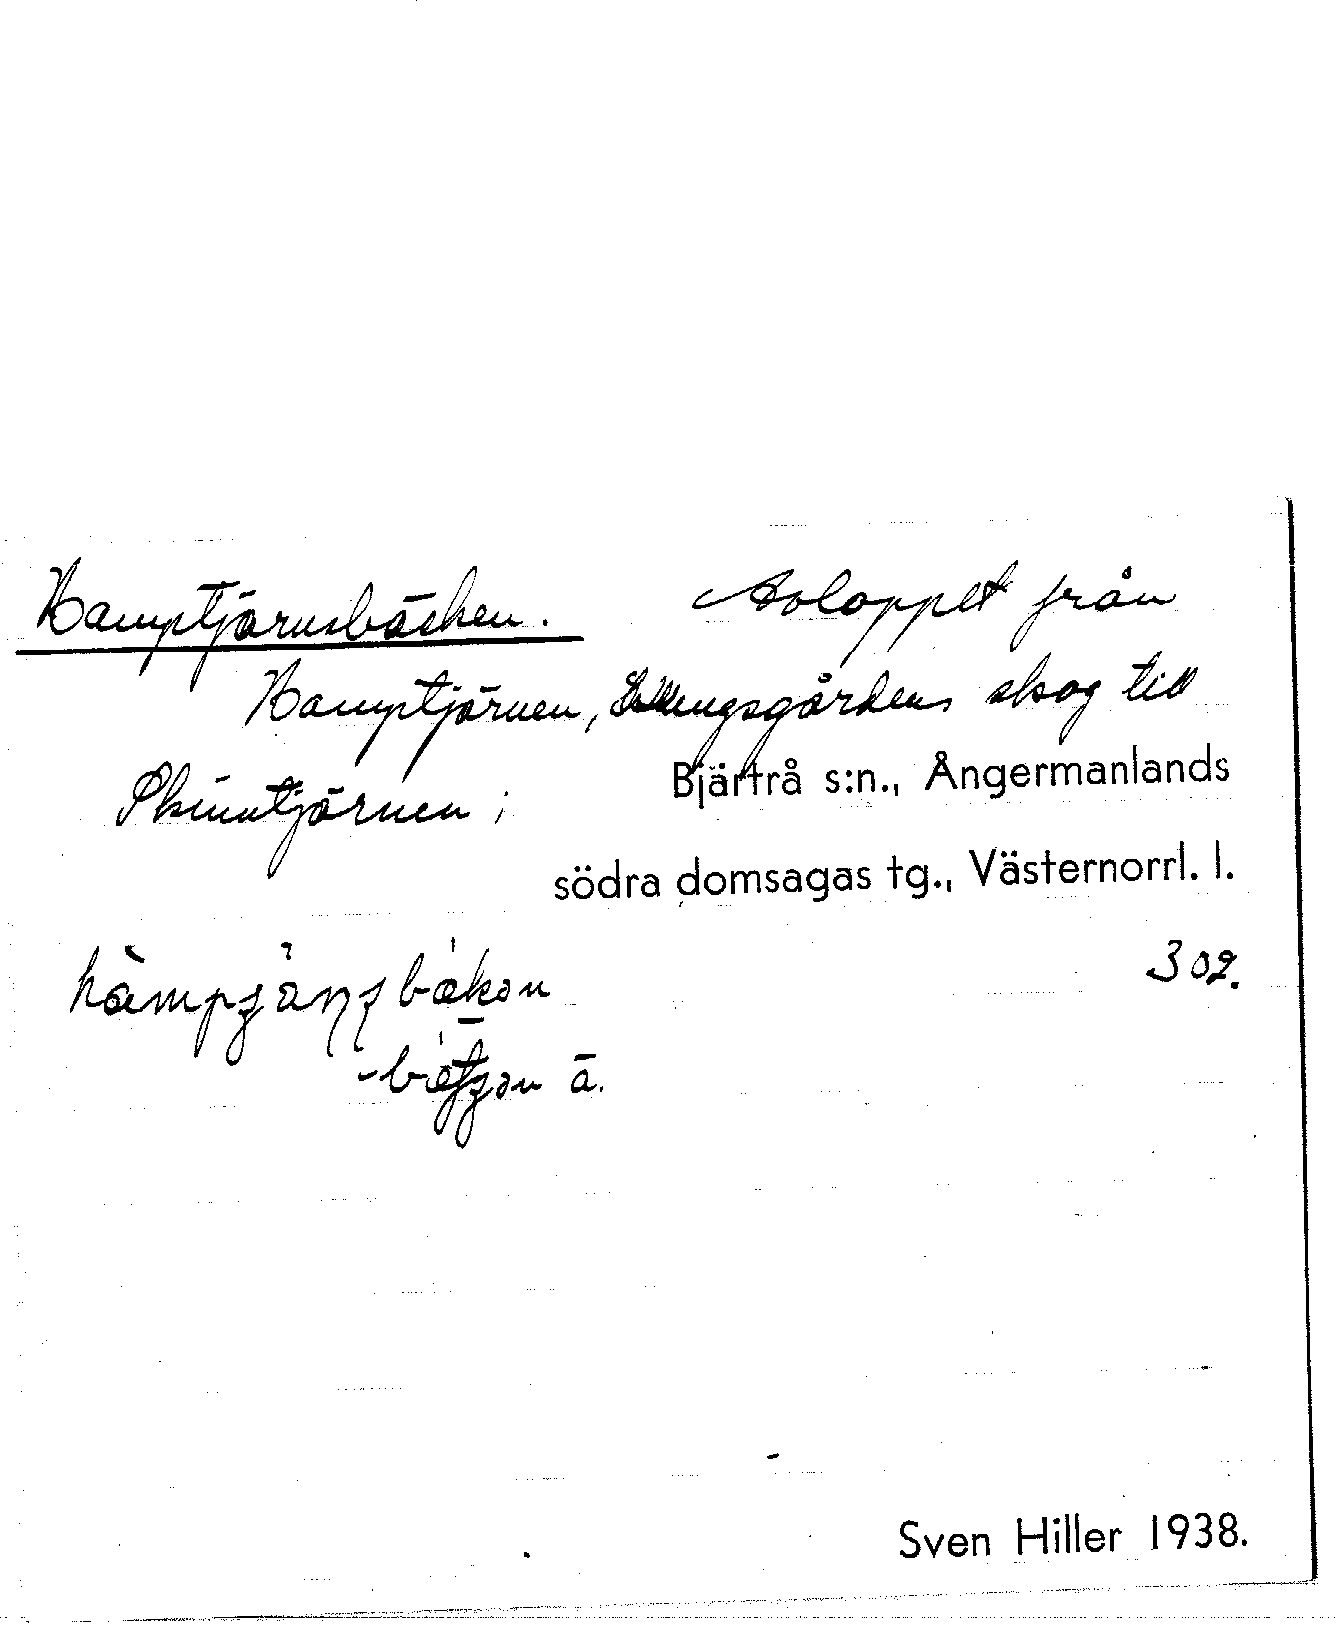 Kamptjärnsbäcken. Avloppet från
Kamptjärnen, gårdens skog till
Skinntjärnen;
Bjärtrå s:n., Ångermanlands
södra domsagas tg., Västernorrl. l.
302.
ä.
Sven Hiller 1938.